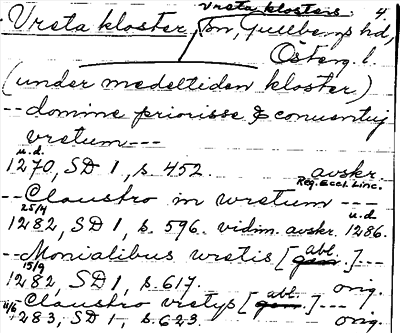 Vreta klosters 4.
Vreta kloster, sn, Gullbergs hd,
Österg. l.
(under medeltiden kloster)
-- domine priorisse & conuentuj
vretum ---
u.d.
1270, SD 1, s. 452. avskr.
Reg. Eccl. Linc.
-- Claustro in wretum ---
25/4 u.d
1282, SD 1, s. 596. vidim. avskr. 1286.
-- Monialibus wretis [gen. abl.] ---
15/9
1282, SD 1, s. 617. orig.
-- Claustro vretys [gen. abl.] ---
1283, SD 1, s. 623. orig.